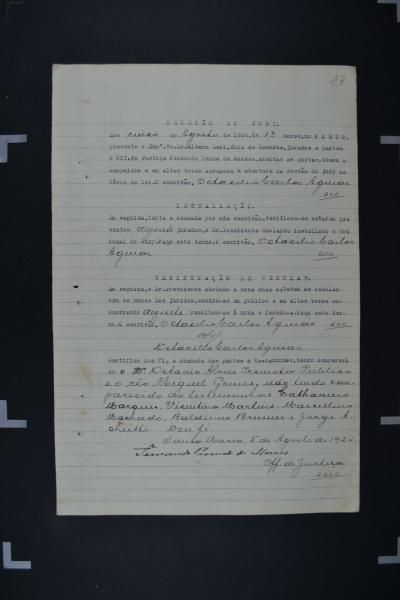 37
REUNIÃO DO JURY.
Aos cinco de Agosto de 1924, ás 13 horas, no FORUM,
presente o Exmº.Sr.Dr.Alvaro Leal, Juiz de Comarca, jurados e partes
o Off.de Justiça Fernando Penna de Moraes, abertas as partes, tocou a
campainha e em altas vozes apregoou a abertura da sessão do jury na
fórma da lei.O escrivão, Octacilio Carlos Aguiar
600
INSTALLAÇÃO.
Em seguida, feita a chamada por mim escrivão, verificou-se estarem pre
sentes dezenete jurados, o Dr.Presidente declarou installado o tri
bunal do Jury.Faço este termo.O escrivão, Octacilio Carlos
Aguiar
600
VERIFICAÇÃO DE CEDULAS.
Em seguida, o Dr.Presidente abrindo a urna onde estavam as cedulas
com os nomes dos jurados, contou-as em publico e em altas vozes en-
contrando dezenete recolheu-as á urna e fechou-a.Faço este ter-
mo.O escrivão, Octacilio Carlos Aguiar
600
Octacilio Carlos Aguiar
Certifico que fiz a chamada das partes e testemunhas, tendo compareci
do o Dr Octavio Abreu Promotor Publico
e o réo Miguel Gomes, não tendo com-
parecido as testemunhas Catharino
Marques, Vicentina Martins, Marcellino
Machado, Balduino Brunner e Jorge A.
Dou fé.
Santa Maria, 5 de Agosto de 1924.
Fernando Penna de Moraes
Off. de Justiça